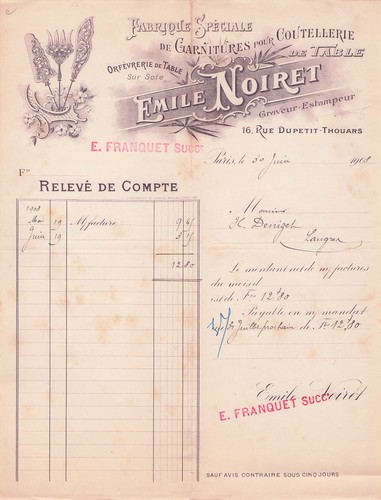 FABRIQUE SPÉCIALE
DE GARNITURES POUR COUTELLERIE
DE TABLE
ORFÈVRERIE DE TABLE
Sur Sole
EMILE NOIRET
Graveur-Estampeur
16, RUE DUPETIT-THOUARS
E. FRANQUET SUCCr
Paris, le 30 Juin 1908
Fo
RELEVÉ DE COMPTE
1908
Mai 19 M/facture 9
Juin 19 3
12 80
Monsieur
Langres
Le montant net de m/ factures
du mois
est de Frs 12,80
Payable en m/ mandat
Juillet prochain de Frs 12,80
Emile Noiret
E. FRANQUET SUCCr
SAUF AVIS CONTRAIRE SOUS CINQ JOURS